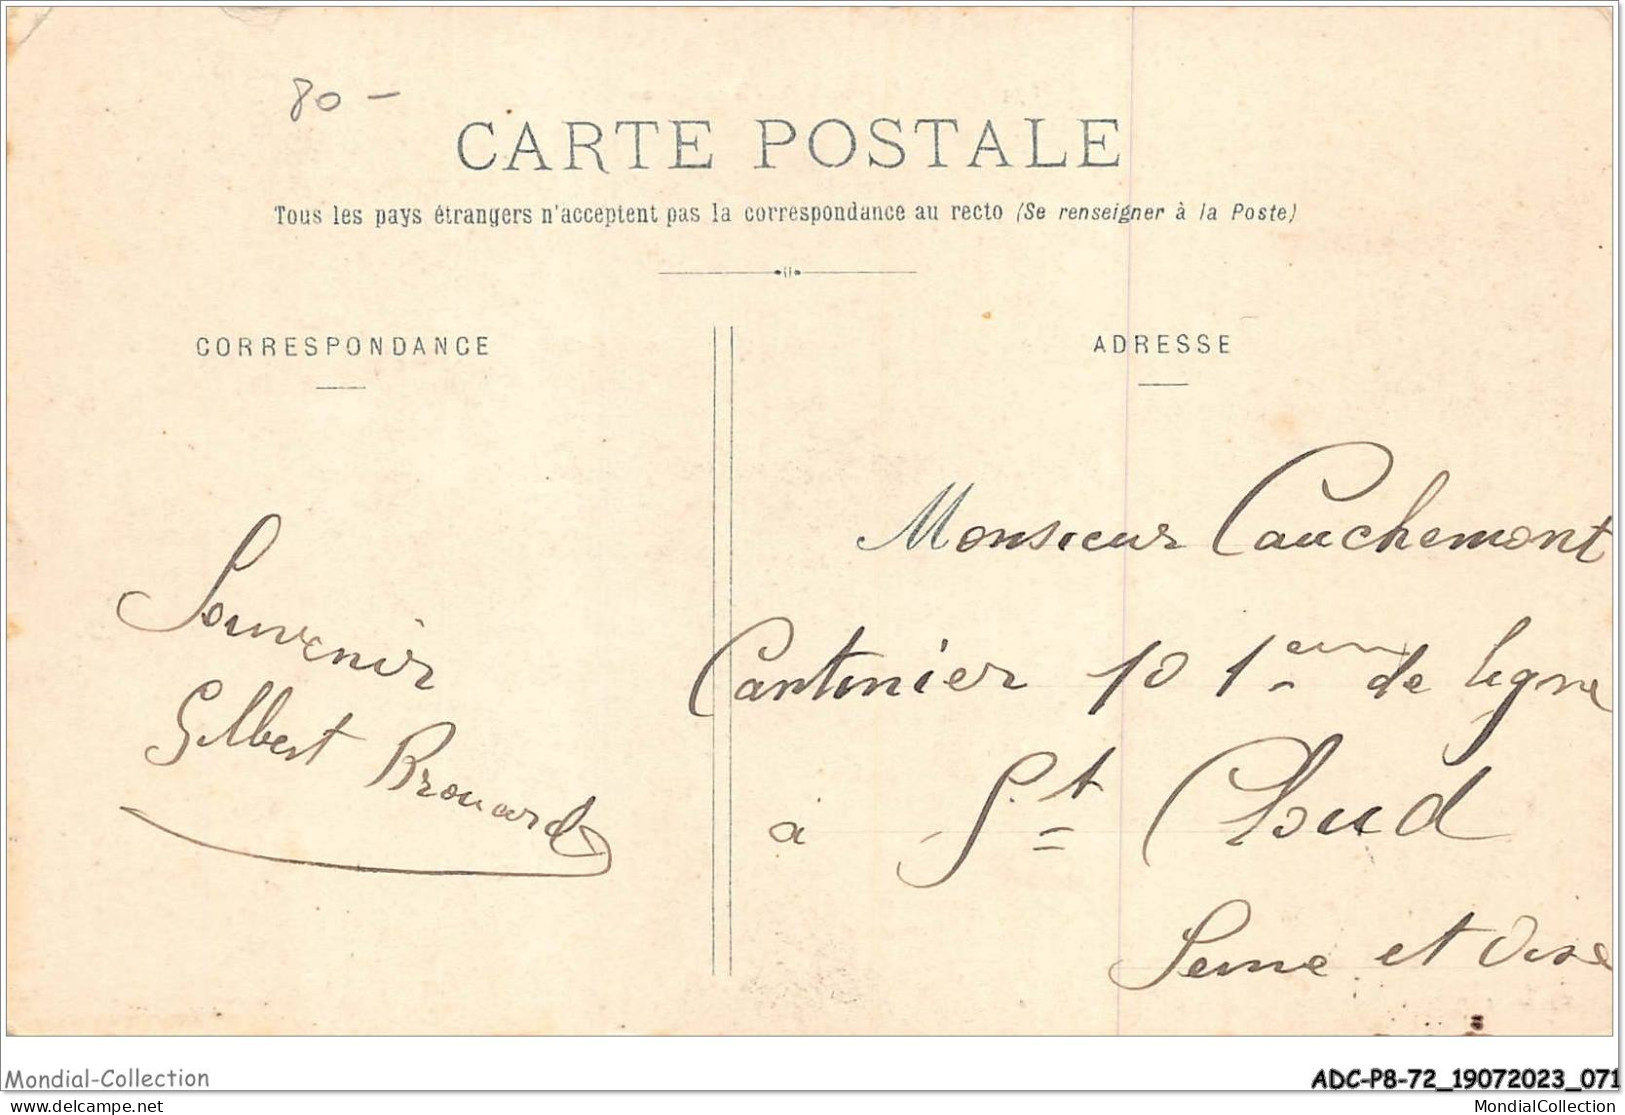 80 -
CARTE POSTALE
Tous les pays étrangers n'acceptent pas la correspondance au recto (Se renseigner à la Poste)
CORRESPONDANCE
Souvenir
Gilbert Brouard
ADRESSE
Monsieur Cauchemont
Cantinier 101eme de ligne
à St Cloud
Seine et Oise
Mondial-Collection
ADC-P8-72_19072023_071
www.delcampe.net
MondialCollection